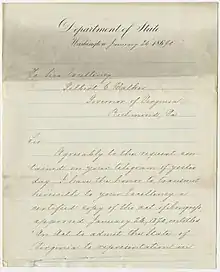 Department of State
Washington January 26 1870
To his Excellency
Gilbert C Walker
Governor of Virginia
Richmond, Va
Sir
Agreeably to the request con-
tained in your telegram of yester
day I have the honor to transmit
herewith to your Excellency a
certified copy of the Act of Congress
approved January 26, 1870, entitled
"An Act to admit the State of
Virginia to representation in